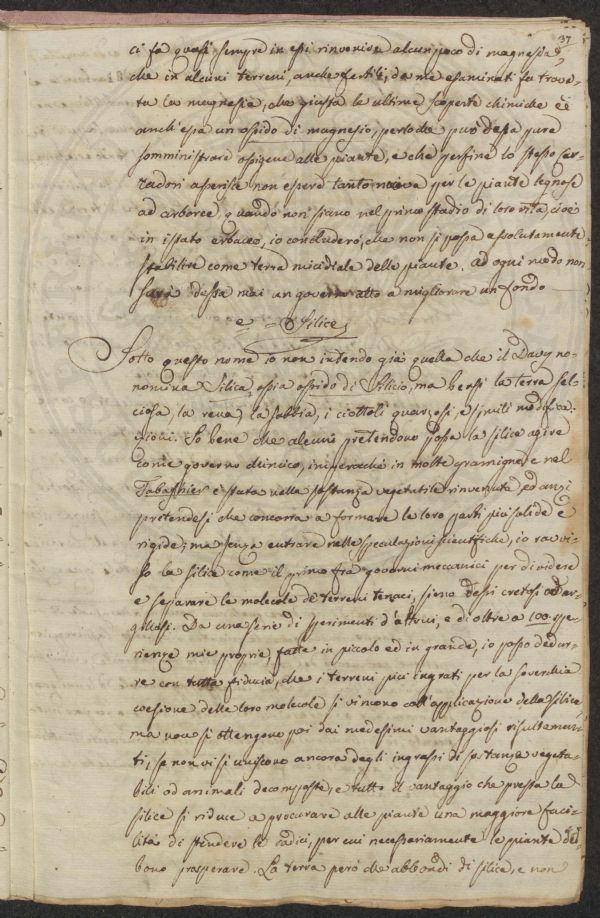 37
ci fa quasi sempre in essi rinvenire alcun poco di magnesia,
che in alcuni terreni, anche fertili, da me esaminati fu trova-
ta la magnesia, che giusta le ultime scoperte chimiche è
anch'essa un ossido di magnesio, perloché può dessa pure
somministrare ossigene alle piante, e che persino lo stesso
asserisce non essere tanto nociva per le piante legnose
ad arboree, quando non siano nel primo stadio di loro vita, cioè
in istato erbaceo, io concluderò, che non si possa assolutamente
stabilire come terra micidiale delle piante. Ad ogni modo non
sarà dessa mai un governo atto a migliorare un fondo
e Silice
Sotto questo nome io non intendo già quella che il Davy no-
nomina Silica, ossia ossido di Silicio, ma bensì la terra sel-
ciosa, la rena, la sabbia, i ciottoli quarzosi, e simili modifica-
zioni. So bene che alcuni pretendono possa la silice agire
come governo chimico, imperocché in molte gramigne e nel
Tabashir è stata nella sostanza vegetabile rinvenuta, ed anzi
pretendesi che concorra a formare le loro parti più solide e
rigide; ma senza entrare nelle speculazioni scientifiche, io ravvi-
so la silice come il primo fra governi meccanici per dividere
e separare le molecole de' terreni tenaci, sieno dessi cretosi od ar-
gillosi. Da una serie di sperimenti d'altrui, e di oltre a 100 spe-
rienze mie proprie, fatte in piccolo ed in grande, io posso dedur-
re con tutta fiducia, che i terreni più ingrati per la soverchia
coesione delle loro molecole si vincono coll'applicazione della silice,
ma non si ottengono poi dai medesimi vantaggiosi risultamen-
ti, se non vi si uniscono ancora degli ingrassi di sostanze vegeta-
bili od animali decomposte, e tutto il vantaggio che presta la
silice si riduce a procurare alle piante una maggiore faci-
lità di stendere le radici, per cui necessariamente le piante deb-
bono prosperare. La terra però che abbondi di silice, e non